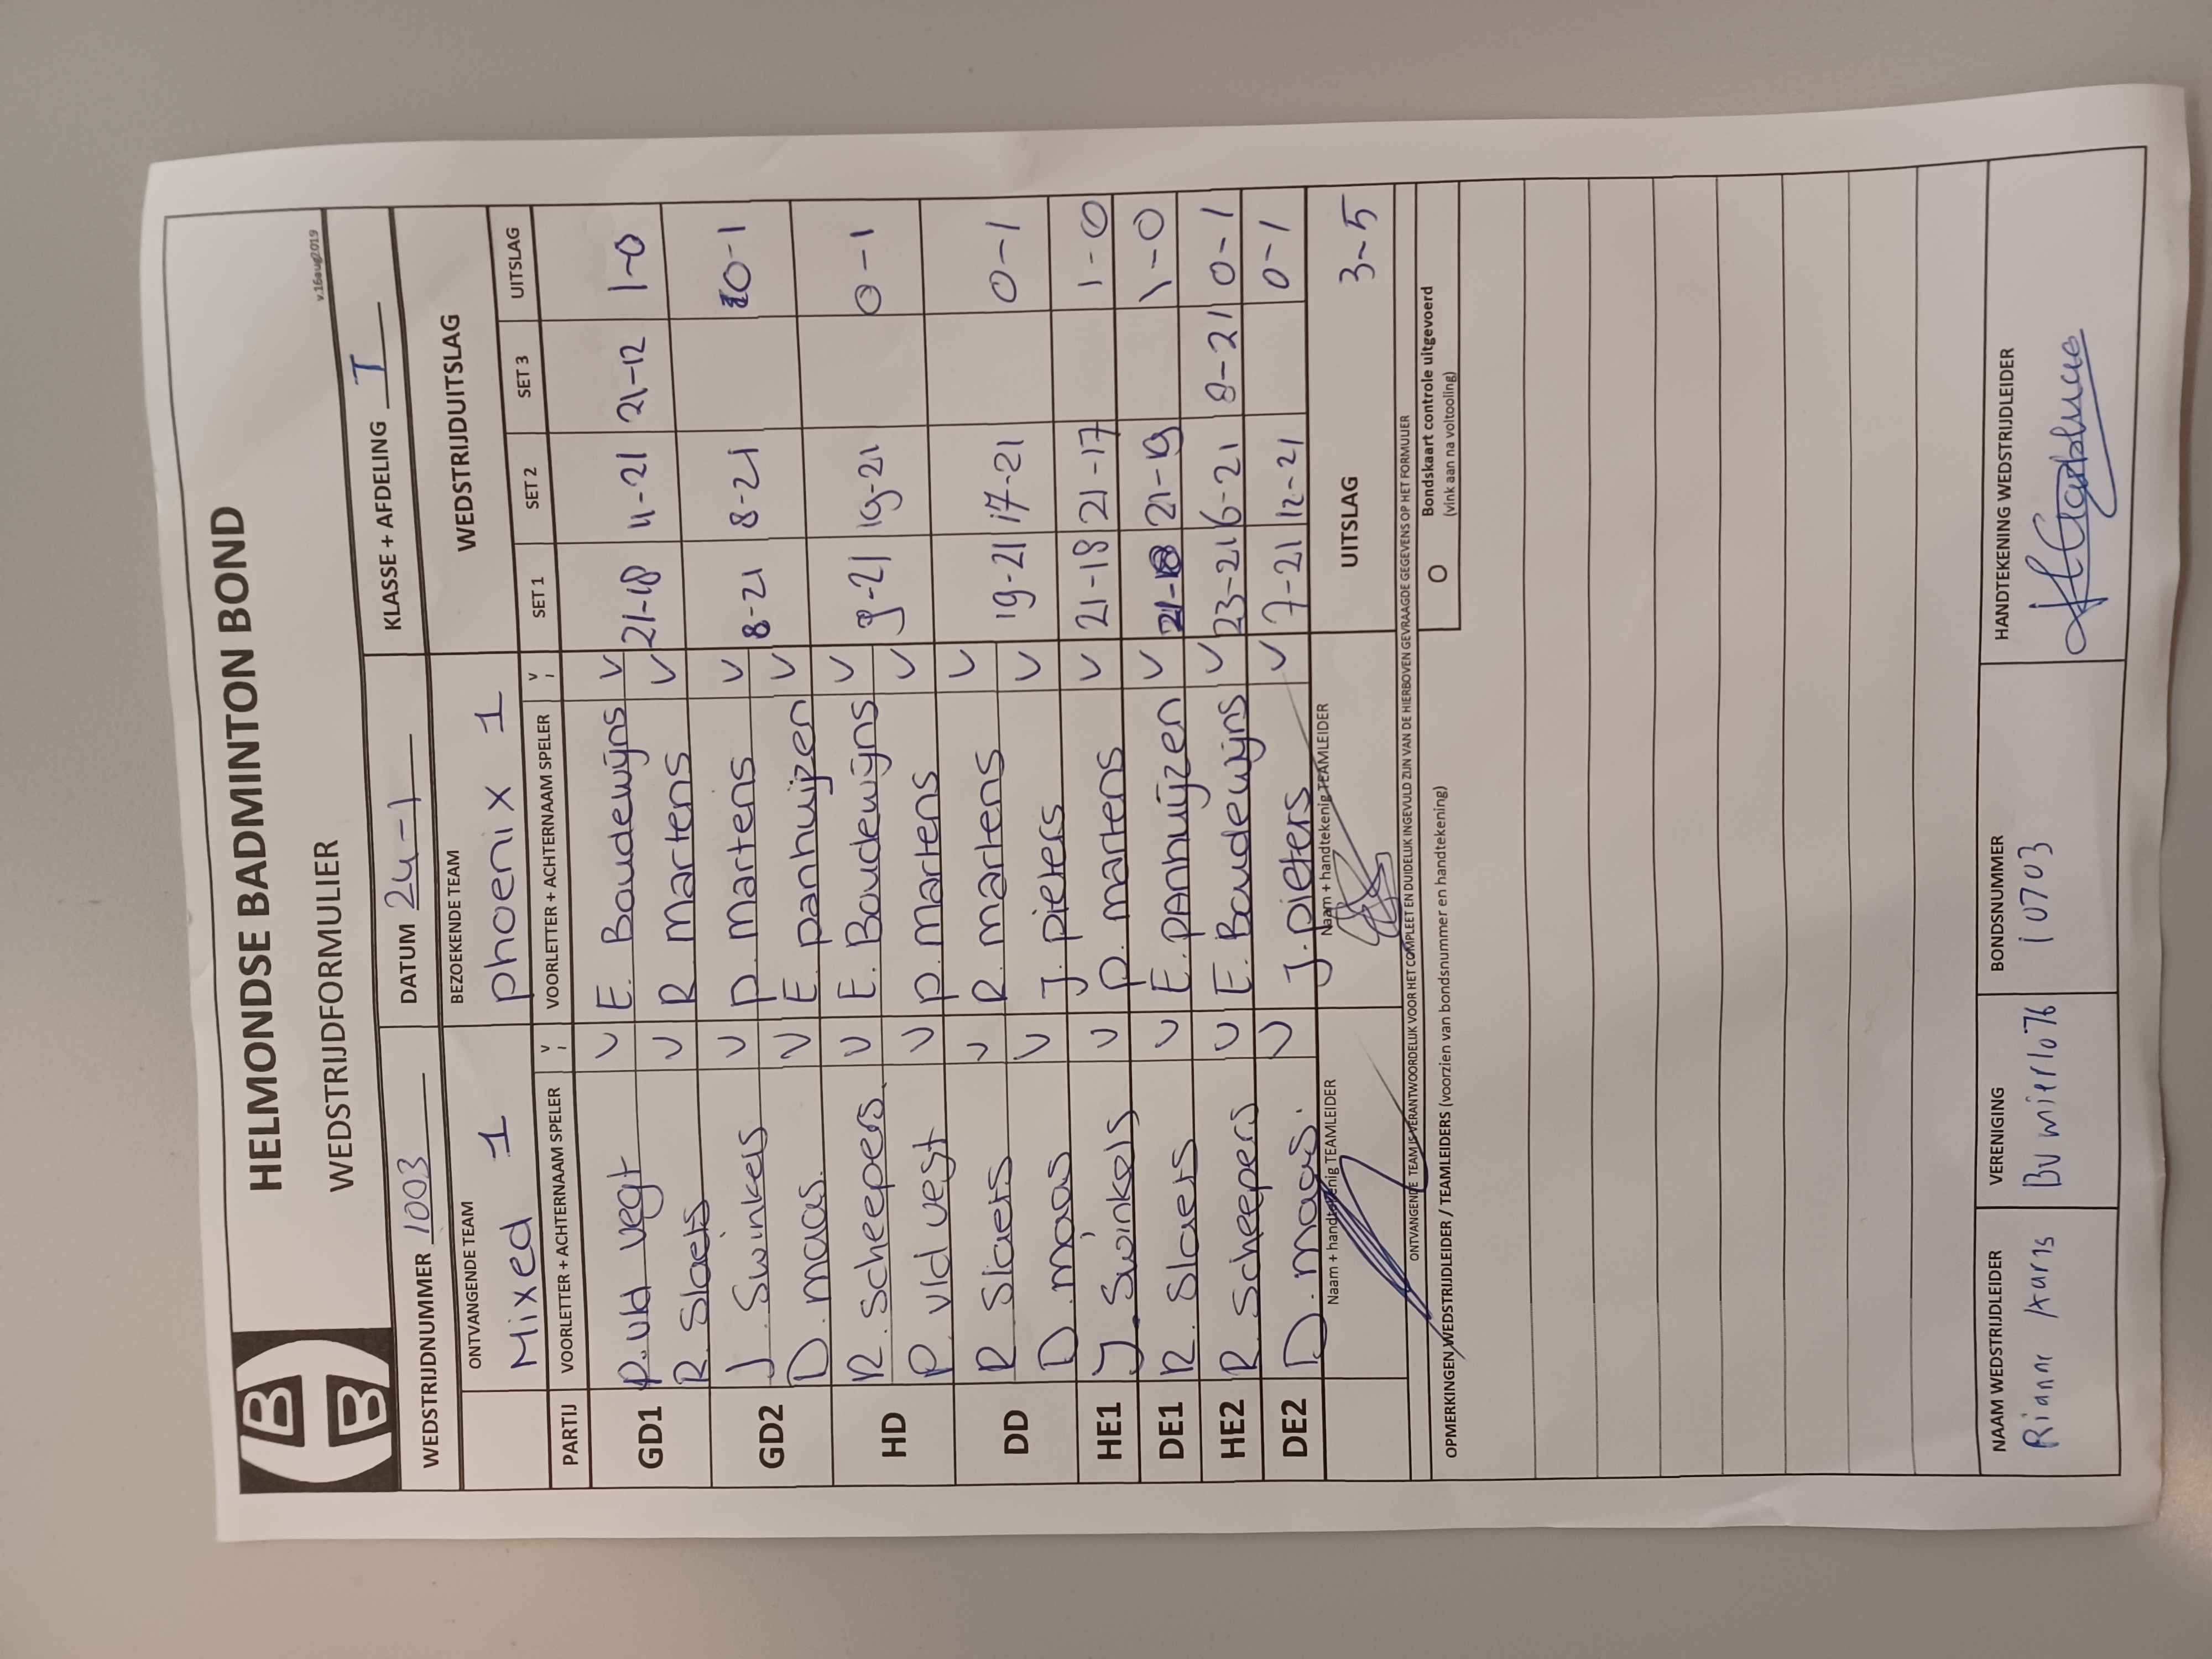 HELMONDSE BADMINTON BOND
WEDSTRIJDFORMULIER
v.16aug2019
WEDSTRIJDNUMMER 1003 DATUM 24-1 KLASSE + AFDELING T
ONTVANGENDE TEAM BEZOEKENDE TEAM WEDSTRIJDUITSLAG
Mixed 1 phoenix 1
PARTIJ VOORLETTER + ACHTERNAAM SPELER V VOORLETTER + ACHTERNAAM SPELER V SET 1 SET 2 SET 3 UITSLAG
GD1 P. vld vegt V E. Boudewijns V 21-18 11-21 21-12 1-0
R. Slaets V R. Martens V
GD2 J. Swinkels V P. Martens V 8-21 8-21 0-1
D. maas. V E. panhuijzen V
HD R. Scheepers. V E. Boudewijns V 9-21 19-21 0-1
P. vld vegt V P. martens V
DD R Slaets V R. martens V 19-21 17-21 0-1
D. maas V J. pieters V
HE1 J. Swinkels V P. martens V 21-18 21-17 1-0
DE1 R. Slaets V E. PAnhuijzen V 21-18 21-19 1-0
HE2 R. Scheepers V E. Boudewijns V 23-21 6-21 8-21 0-1
DE2 D. maas. V J. pieters V 7-21 12-21 0-1
Naam + handtekenig TEAMLEIDER Naam + handtekenig TEAMLEIDER UITSLAG 3-5
ONTVANGENDE TEAM IS VERANTWOORDELIJK VOOR HET COMPLEET EN DUIDELIJK INGEVULD ZIJN VAN DE HIERBOVEN GEVRAAGDE GEGEVENS OP HET FORMULIER
OPMERKINGEN WEDSTRIJDLEIDER / TEAMLEIDERS (voorzien van bondsnummer en handtekening)
O Bondskaart controle uitgevoerd
(vink aan na voltooling)
NAAM WEDSTRIJDLEIDER VERENIGING BONDSNUMMER HANDTEKENING WEDSTRIJDLEIDER
Rianne BV Mierlo '76 10703